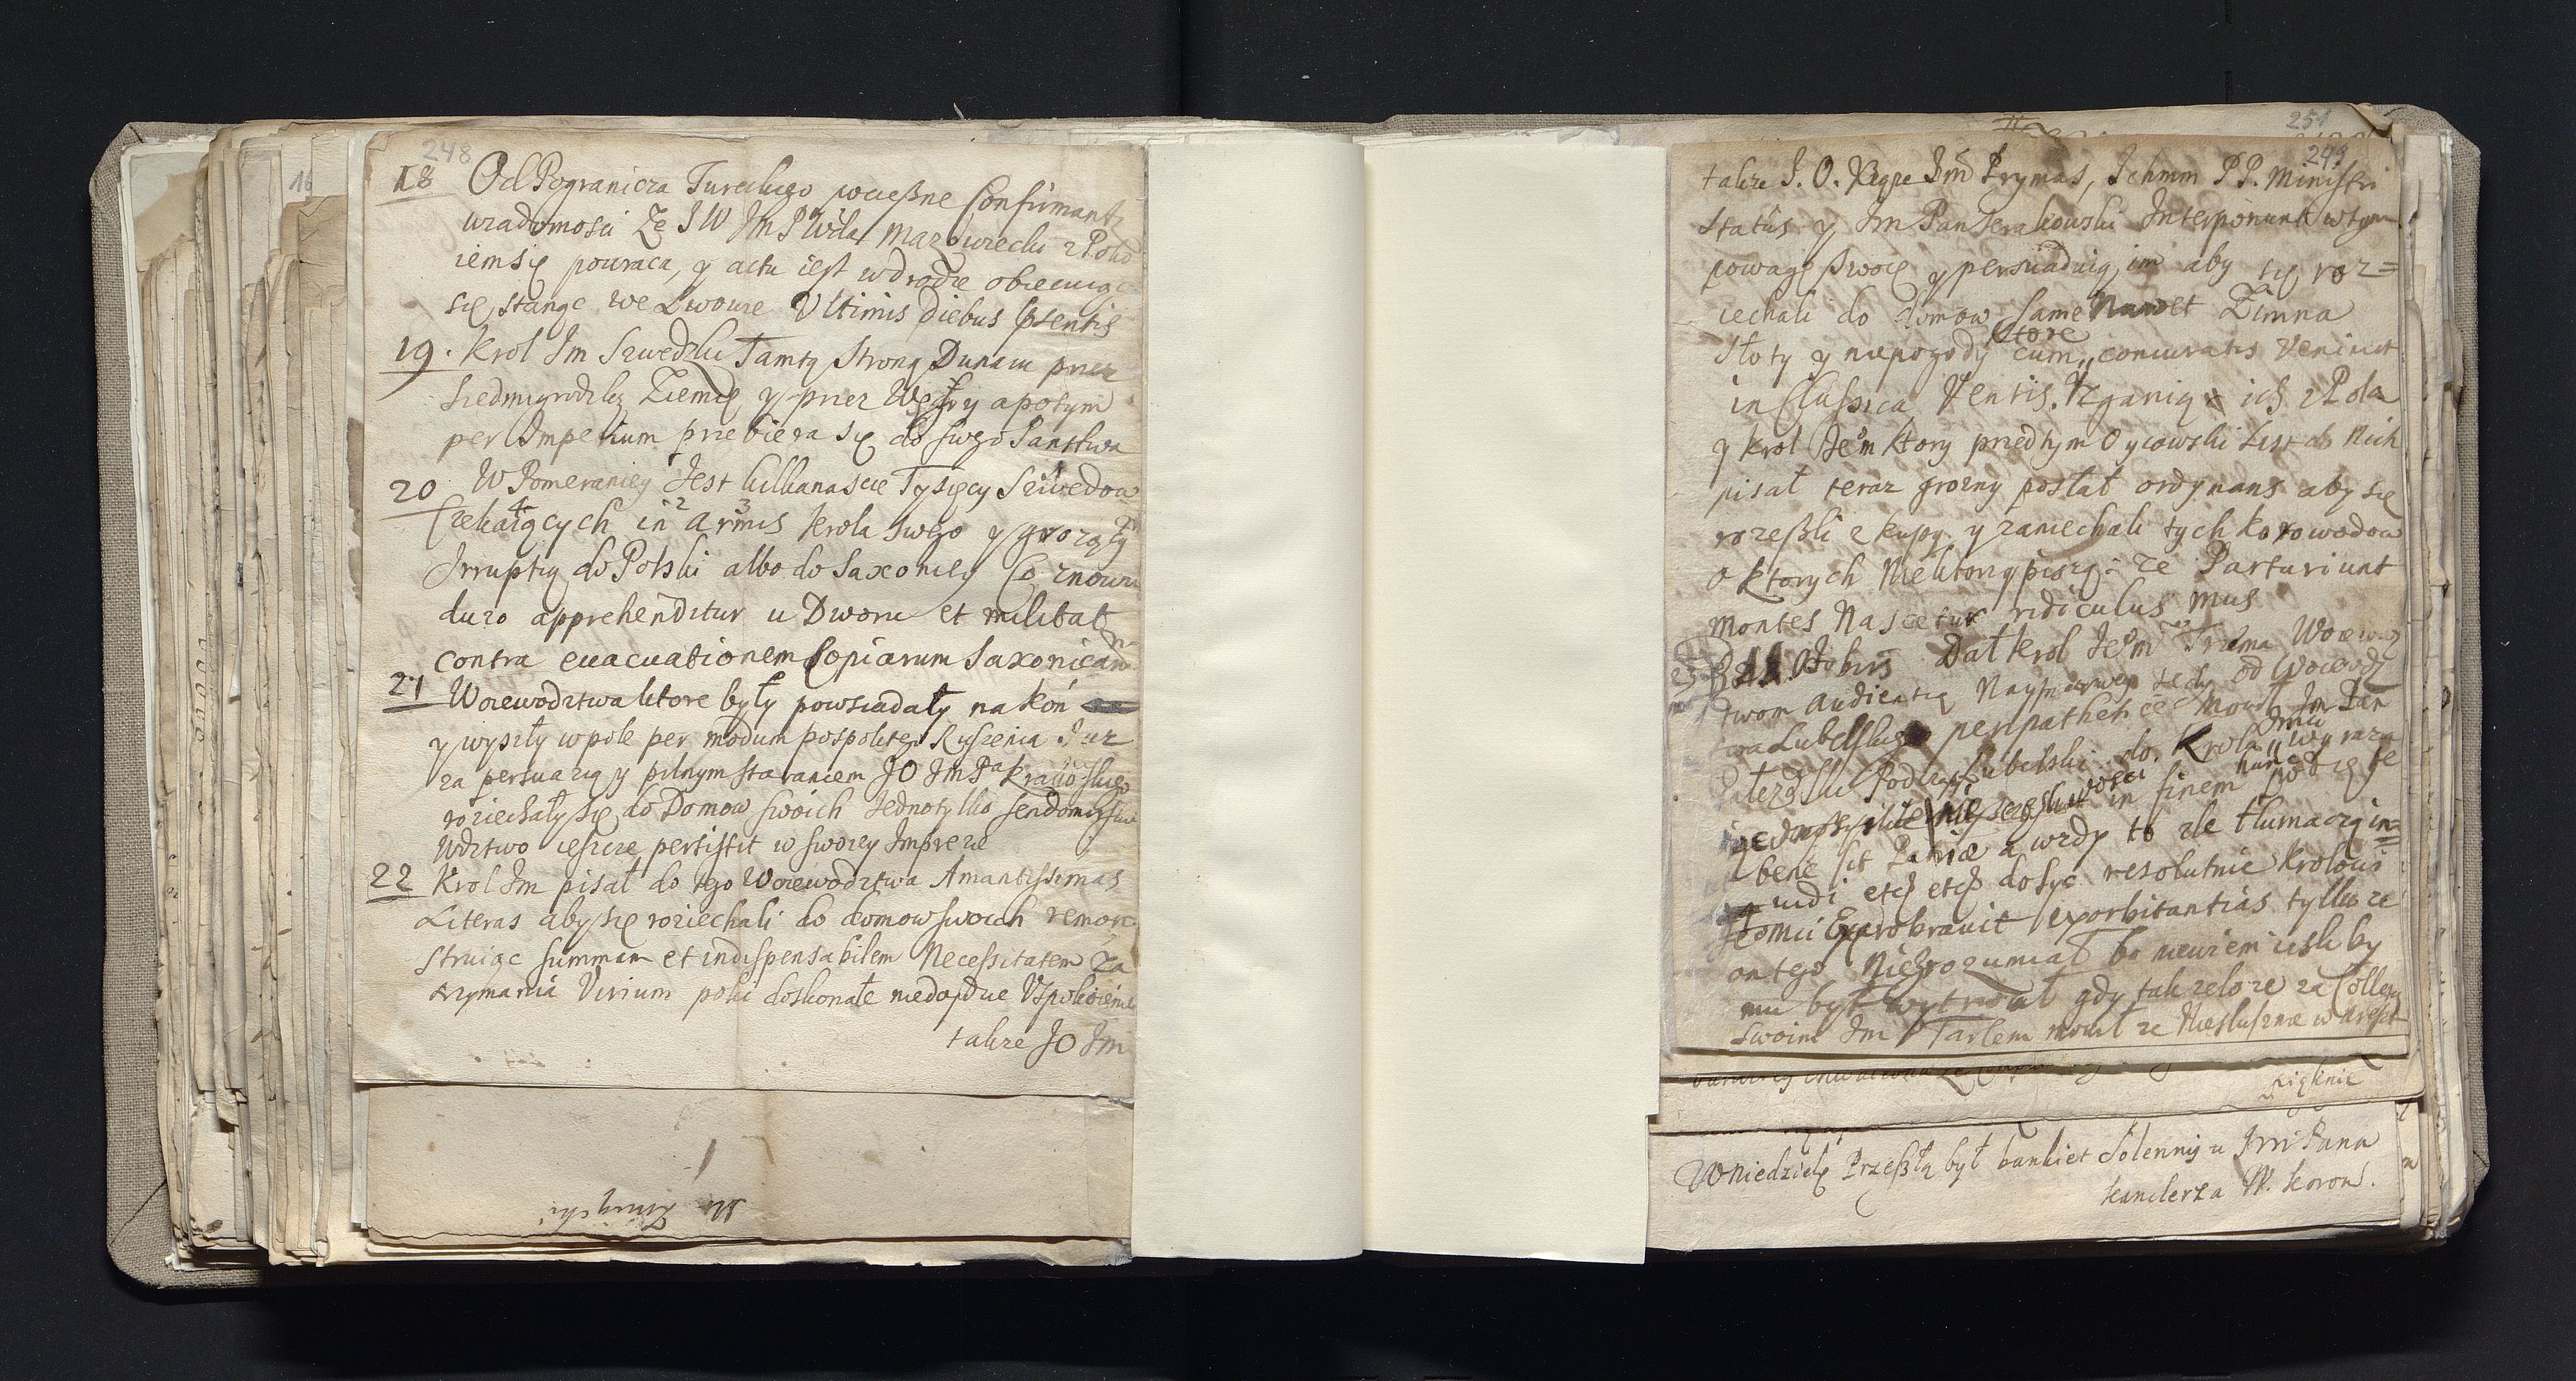 248
18 Od Pogranicza Tureckiego wczesne Confirmant
wiadomosci Ze JW Jm P Wda Mazowiecki z Poko
iem się powraca, y actu iest w drodze obiecuiąc
się stanąc we Lwowie Ultimis diebus psentis
19. Krol Jm Szwedzki Tamtą Stroną Dunaiu przez
Siedmigrodzką Ziemię y przez Węgry a potym
per Imperium przebiera się do swego Panstwa
20 W Pomeraniey Jest kilkanascie Tysięcy Szwedow
Czekaiących in armis Krola swego y grozą tą
Irruptią do Polski albo do Saxoniey Co znowu
duzo apprehenditur u Dworu et militat
contra euacuationem Copiarum Saxonicarum
21 Woiewodztwa ktore były powsiadały na kon
y wyszły w pole per modum pospolitego Ruszenia Juz
za persuazią y pilnym staraniem JO Jm Pa Krakoskiego
roziechały się do Domow swoich Jedno tylko Sendomirskie
Wdztwo ieszcze persistit w swoiey Imprezie
22 Krol Jm pisał do tego Woiewodztwa Amantissimas
Literas aby się roziechali do domow swoich remon
struiąc summam et indispensabilem Necessitatem Za
trzymania Virium poki doskonałe niedoydzie Uspokoienie
takze JO Jm
251
249
takze J. O. Xiąze Jm Prymas, Ichmm PP. Ministri
Status y Jm Pan Krakowski Interponunt w tym
powagę swoię y persuaduią im aby się roz=
iechali do domow same Nawet Zimna
Słoty y niepogody ktore cum coniuratis veniunt
in Classica Ventis. Zganią ich z Pola
y Krol Jeom ktory przedtym Oycowski List do Nich
pisał teraz grozny posłał ordynans aby się
rozeszli z kupy y zaniechali tych korowodow
o ktorych Niektorzy piszą: ze Parturiunt
montes Nascetur ridiculus mus
23 8bris Dał Krol Jeom Trzema Woiewodz
twom audientią Naypierwey tedy od Woiewodz
twa Lubelskiego peripathetice mowił Jm Pan
Podczaszy Lubelski do Krola Jmci wyraza
in finem
bene sit Patriæ a wzdy to zle tłumaczą in=
uidi etc etc dosyc resolutnie Krolowi
Jeomci Exprobrauit exorbitantias tylko ze
on tego Nie zrozumiał bo niewiem iesli by
mu był wytrwał gdy tak zeloze za Collegą
swoim Jm P Tarłem mowił ze Niesłusznie w areszt
pięknie
W Niedzielę Przeszłą był bankiet Solenny u Jm Pana
Kanclerza W. Koron.